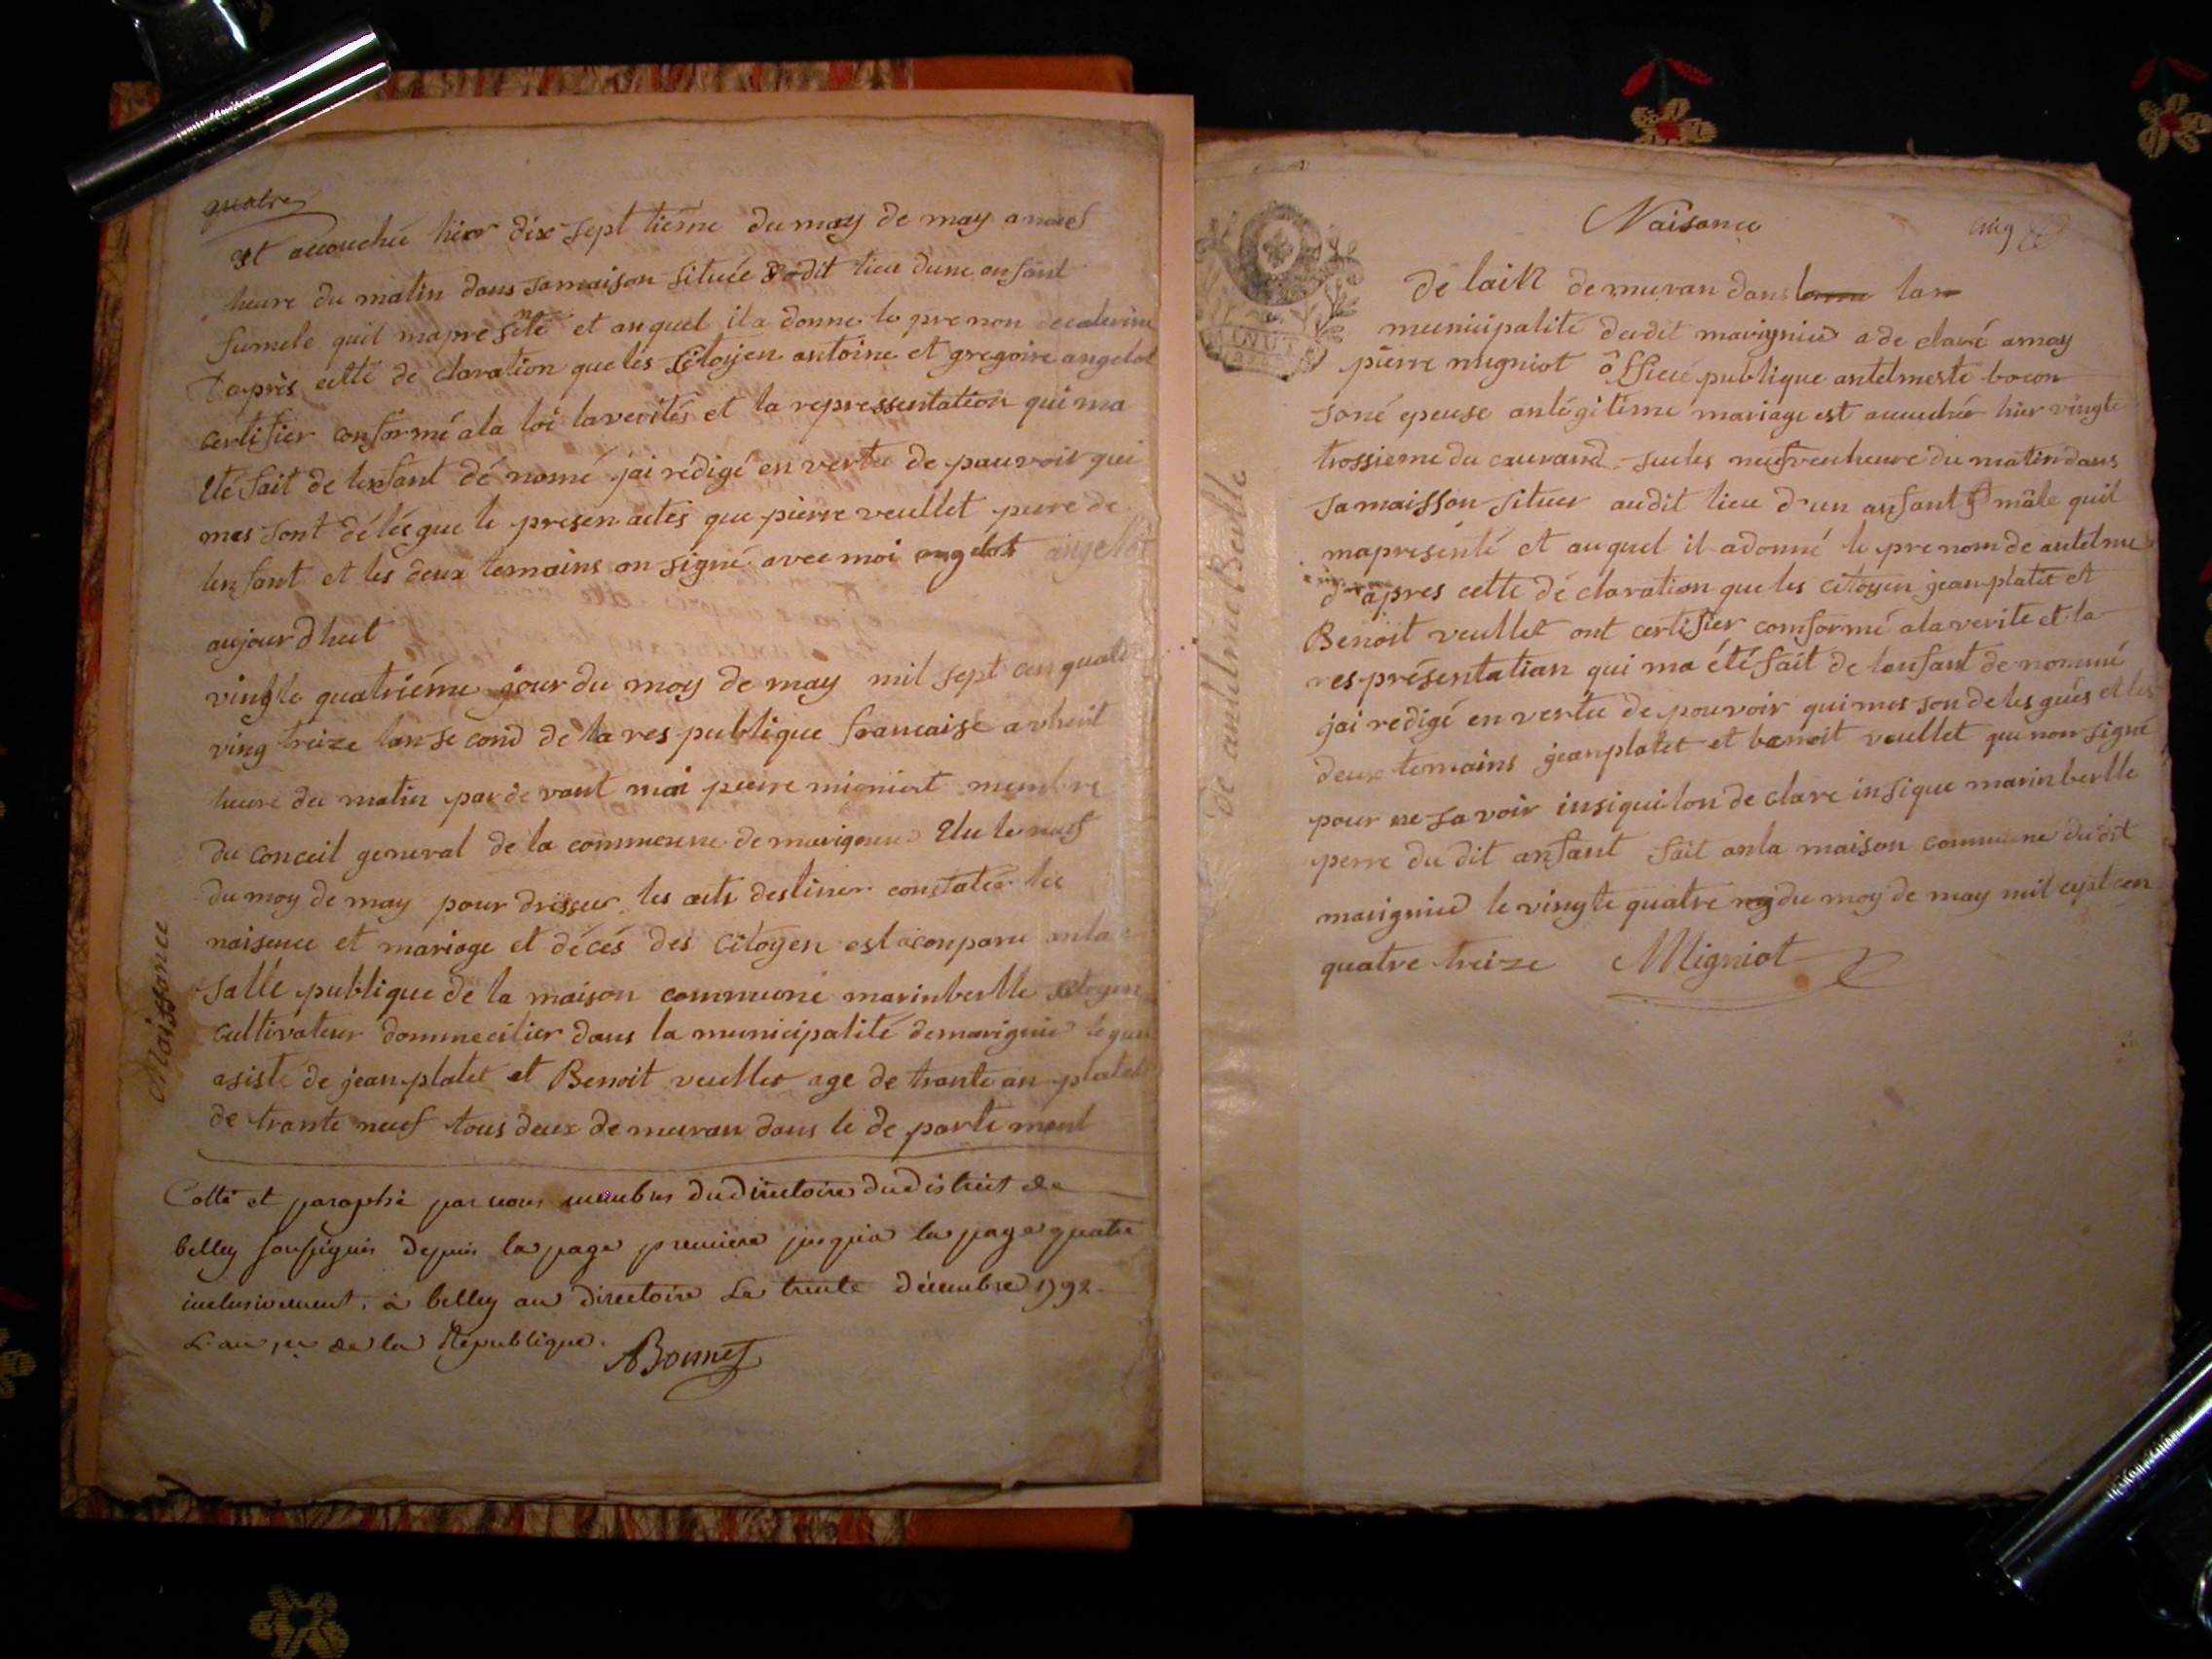 quatre
est accouchée hier dix-sept tiéme du moy de may a neuf
heure du matin dans sa maison située dit lieu dune enfant
fumele quil mapresenté et auquel il a donne le prenon de caterine
Daprès cette dé claration que les Citoyen antoine et gregoire angelot
certifier conformé a la loi la veritées et la repressentation qui ma
été fait de lenfant dé nomé jai rédigé en vertu de pauvoir qui
mes sont délégue le presen actes que pierre veullet pere de
lenfant et les deux temains on signé avec moi angelot angelot
aujourdhuit
vingte quatriéme jour du moy de may mil sept cen quatre
ving treize lan se cond de la res publique francaise a vhuit
heure du matin par de vant moi pierre migniot membre
du conceil general de la commeune de marignieu Elu le neuf
du moy de may pour dresser les acts destiner constater les
naisence et mariage et décés des Citoyen est aconparu anla
salle publique de la maison commune marinberlle citoyen
cultivateur dommecilier dans la municipalité demarignieu lequel
asiste de jean platet et Benoit veullet age de trante an platet
de trante neuf tous deux de meuran dans le de parte ment
Naissance
Cotté et paraphé par nous membres du directoire du district de
belley soussignés depuis la page premiere jusqu'a la page quatre
inclusivement, à belley au directoire Le trente décembre 1792
L'an 1er de la République. ABonnet
Naisance
cinq
de lain de muran dans la
municipalité dudit marignieu a de claré a moy
pierre migniot officié publique antelmeste bocon
soné epeuse anlégitime mariage est acuchée hier vingte
trossieme du courand sur les neufveuheure du matin dans
samaisson situer audit lieu d'un anfant mâle quil
mapresenté et auquel il adonné le prenom de antelme
d'apres cette dé claration que les citoyen jean platet et
Benoit veullet ont certifier comformé alaverite et la
res présentatian qui ma été fait de lanfant de nommé
jai redigé en vertu de pouvoir qui mes son de les gués et les
deux temains jeanplatet et benoit veullet qui non signé
pour ne savoir insiquilon de clare insique marinberlle
perre du dit anfant fait anla maison commune du dit
marignieu le vingte quatre du moy de may mil cept cen
quatre treize Migniot
de antelme Berlle